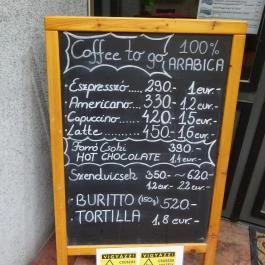 Coffee to go 100% ARABICA
Eszpresszó...... 290.- 1 eur.-
Americano... 330.- 1,2 eur.-
Capuccino...... 420.- 1,5 eur.-
Latte............ 450.- 1,6 eur.-
Forró Csoki 390.-
HOT CHOCOLATE 1,4 eur.-
Szendvicsek 350.- ~ 620.-
1,2 eur.- 2,2 eur.-
BURITTO (150g) 520.-
TORTILLA 1,8 eur.-
VIGYÁZZ! VIGYÁZZ!